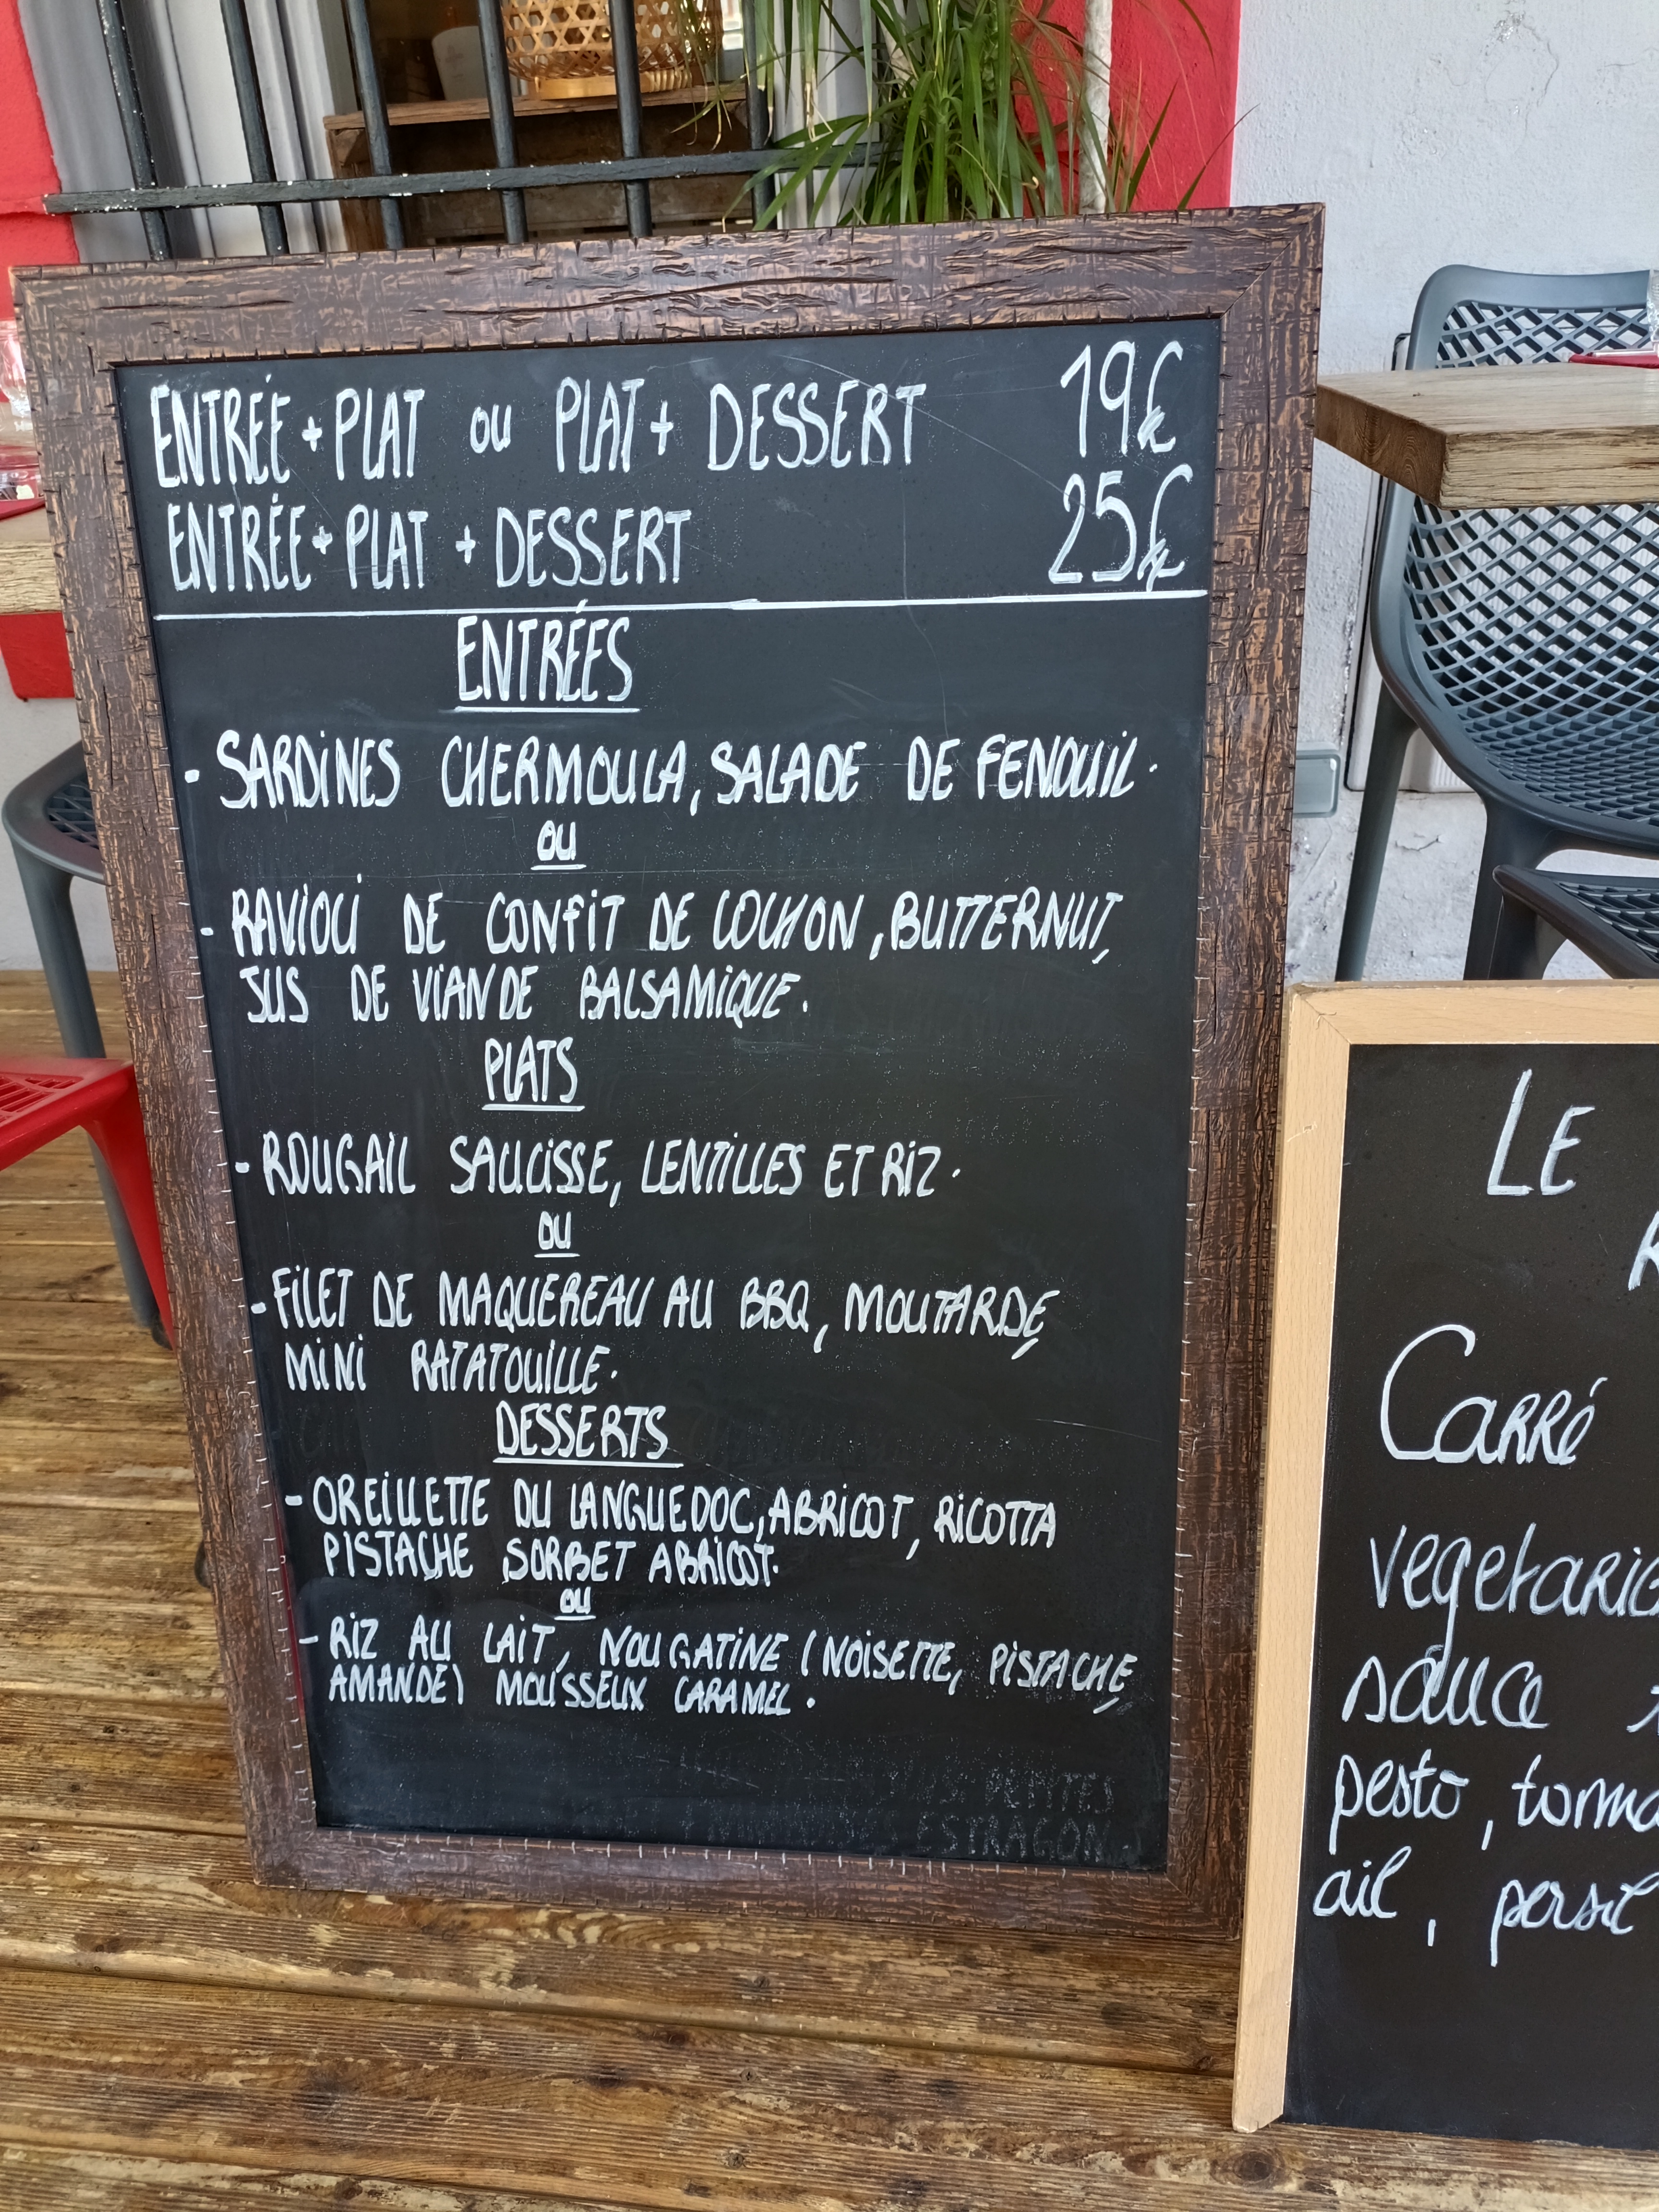 ENTRÉE + PLAT ou PLAT + DESSERT 19€
ENTRÉE + PLAT + DESSERT 25€
ENTRÉES
- SARDINES CHERMOULA, SALADE DE FENOUIL.
OU
- RAVIOLI DE CONFIT DE COCHON, BUTTERNUT,
JUS DE VIANDE BALSAMIQUE.
PLATS
- ROUGAIL SAUCISSE, LENTILLES ET RIZ.
OU
- FILET DE MAQUEREAU AU BBQ, MOUTARDE,
MINI RATATOUILLE.
DESSERTS
- OREILLETTE DU LANGUEDOC, ABRICOT, RICOTTA
PISTACHE, SORBET ABRICOT.
OU
- RIZ AU LAIT, NOUGATINE (NOISETTE, PISTACHE,
AMANDE) MOUSSEUX CARAMEL.
ESTRAGON
LE
Carré
sauce
pesto,
ail, persil